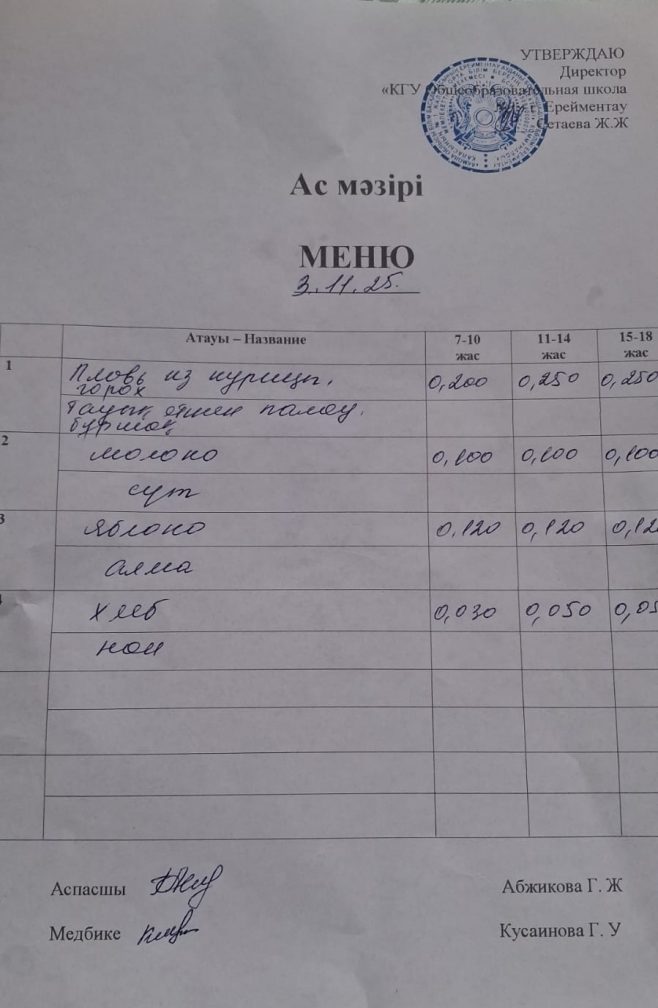 УТВЕРЖДАЮ
Директор
«КГУ Общеобразовательная школа
Ерейментау
Сетаева Ж.Ж
Ас мәзірі
МЕНЮ
3.11.25.
Атауы – Название 7-10 жас 11-14 жас 15-18 жас
1 Пловь из курицы. горох 0,200 0,250 0,250
Тауық етінен палау. бұршақ
2 молоко 0,100 0,100 0,100
сүт
3 Яблоко 0,120 0,120 0,12
алма
4 Хлеб 0,030 0,050 0,05
нан
Аспасшы Абжикова Г. Ж
Медбике Кусаинова Г. У